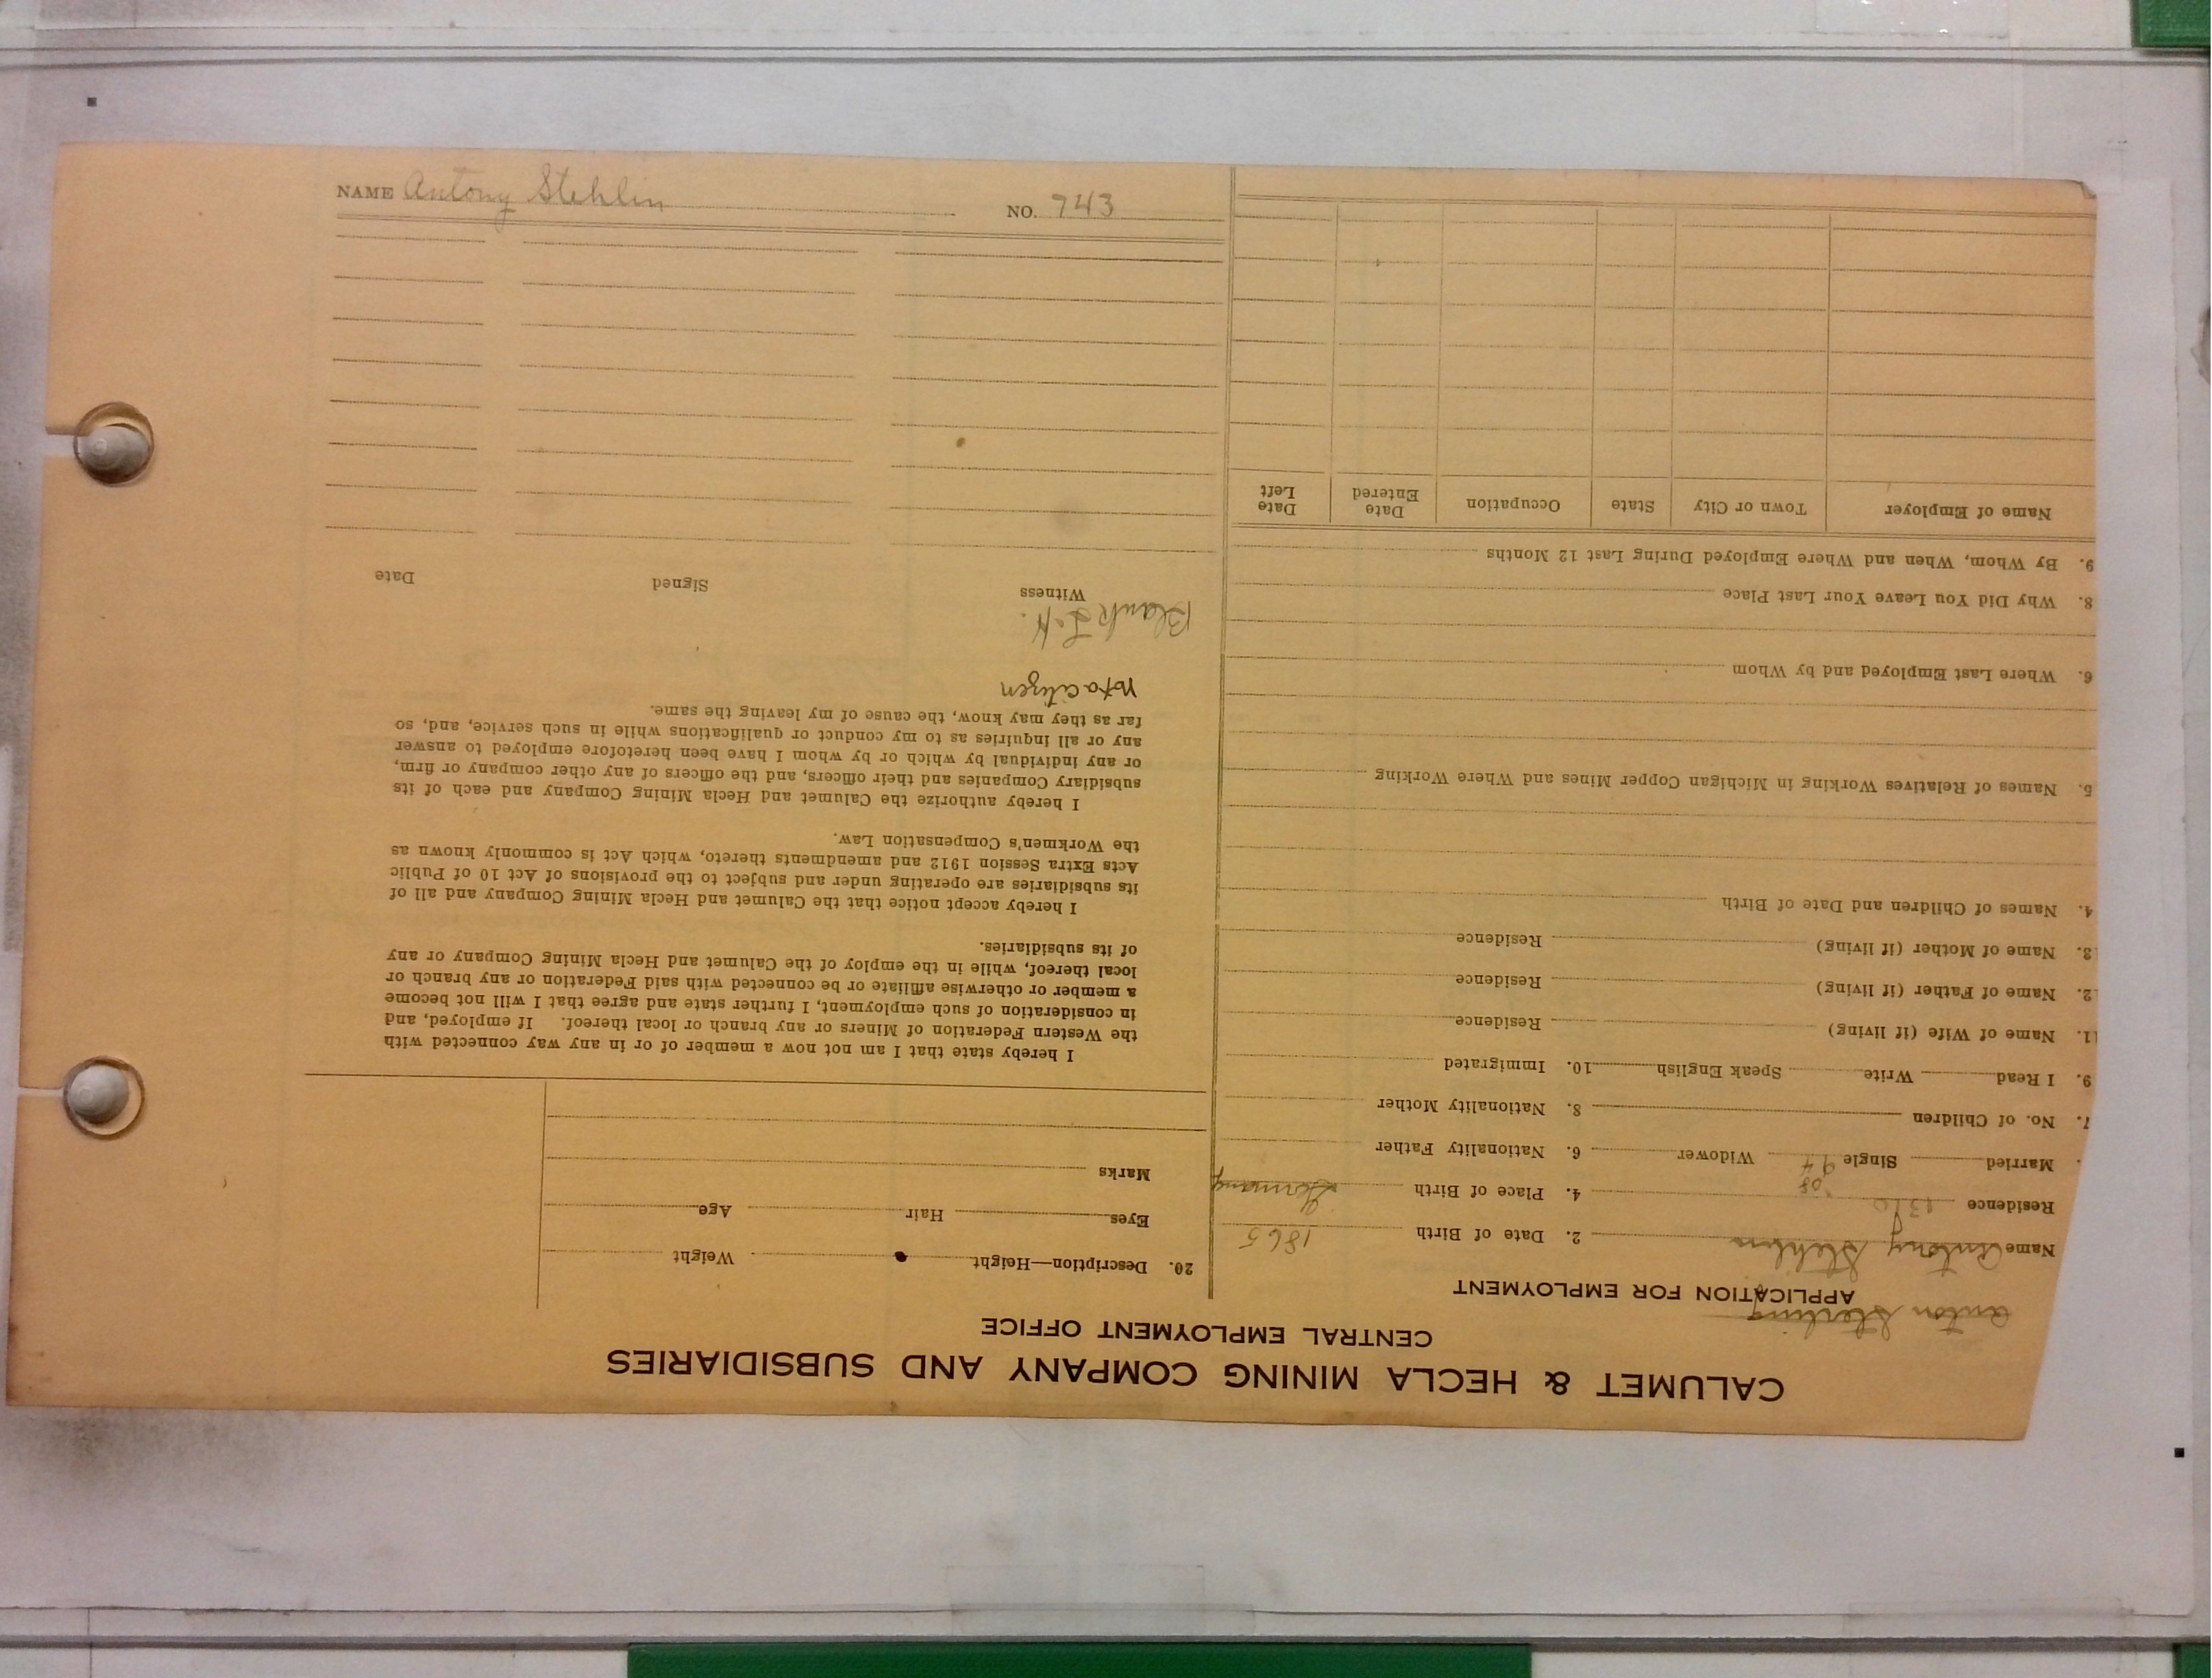 NAME Antony Stehlin NO. 743
CALUMET & HECLA MINING COMPANY AND SUBSIDIARIES
CENTRAL EMPLOYMENT OFFICE
Anton Sterling
APPLICATION FOR EMPLOYMENT
Name Antony Stehlin 2. Date of Birth 1865
Residence 4. Place of Birth Germany
. Married Single Widower 6. Nationality Father
7. No. of Children 8. Nationality Mother
9. I Read Write Speak English 10. Immigrated
11. Name of Wife (if living) Residence
12. Name of Father (if living) Residence
13. Name of Mother (if living) Residence
4. Names of Children and Date of Birth
5. Names of Relatives Working in Michigan Copper Mines and Where Working
6. Where Last Employed and by Whom
8. Why Did You Leave Your Last Place
9. By Whom, When and Where Employed During Last 12 Months
Name of Employer Town or City State Occupation Date Entered Date Left
20. Description—Height Weight
Eyes Hair Age
Marks
I hereby state that I am not now a member of or in any way connected with
the Western Federation of Miners or any branch or local thereof. If employed, and
in consideration of such employment, I further state and agree that I will not become
a member or otherwise affiliate or be connected with said Federation or any branch or
local thereof, while in the employ of the Calumet and Hecla Mining Company or any
of its subsidiaries.
I hereby accept notice that the Calumet and Hecla Mining Company and all of
its subsidiaries are operating under and subject to the provisions of Act 10 of Public
Acts Extra Session 1912 and amendments thereto, which Act is commonly known as
the Workmen's Compensation Law.
I hereby authorize the Calumet and Hecla Mining Company and each of its
subsidiary Companies and their officers, and the officers of any other company or firm,
or any individual by which or by whom I have been heretofore employed to answer
any or all inquiries as to my conduct or qualifications while in such service, and, so
far as they may know, the cause of my leaving the same.
not a citizen
Blank
Witness Signed Date